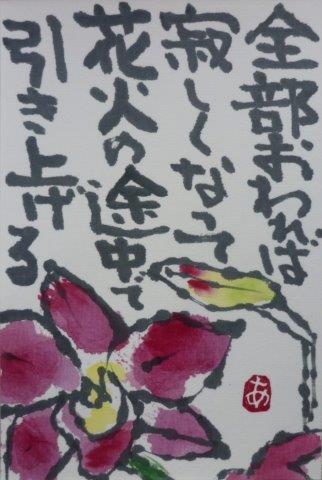 全部おわれば
寂しくなって
花火の途中で
引き上げる
あ